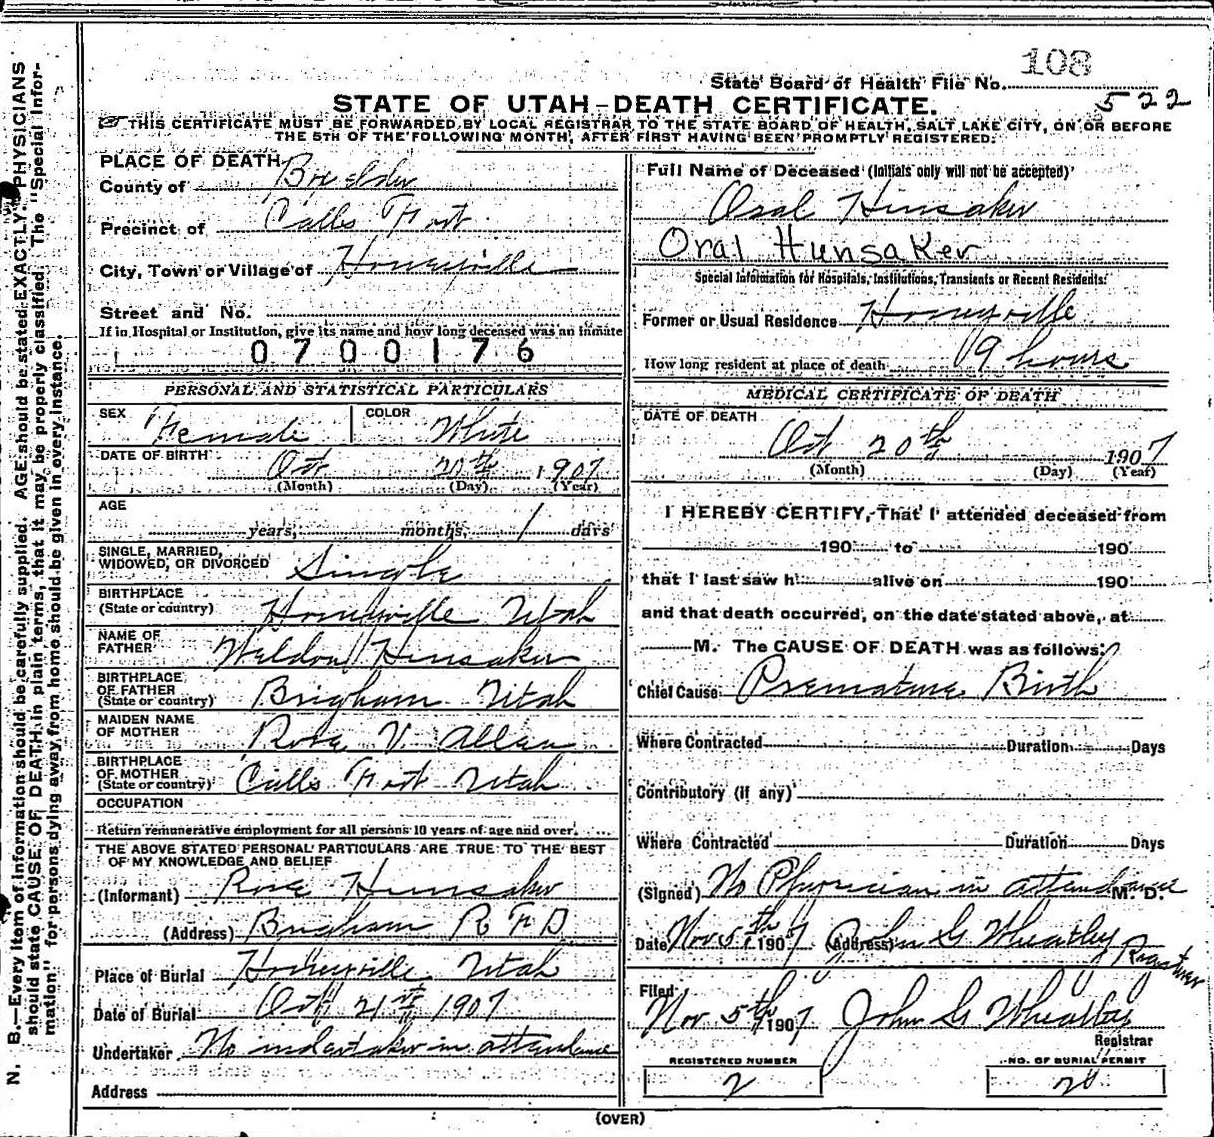 108
State Board of Health File No. 522
STATE OF UTAH—DEATH CERTIFICATE.
THIS CERTIFICATE MUST BE FORWARDED BY LOCAL REGISTRAR TO THE STATE BOARD OF HEALTH, SALT LAKE CITY, ON OR BEFORE
THE 5TH OF THE FOLLOWING MONTH, AFTER FIRST HAVING BEEN PROMPTLY REGISTERED.
N. B.—Every item of information should be carefully supplied. AGE should be stated EXACTLY. PHYSICIANS
should state CAUSE OF DEATH in plain terms, that it may be properly classified. The "Special Infor-
mation" for persons dying away from home should be given in every instance.
PLACE OF DEATH
County of Box elder
Precinct of Calls Fort
City, Town or Village of Honeyville
Street and No.
If in Hospital or Institution, give its name and how long deceased was an inmate
0700176
PERSONAL AND STATISTICAL PARTICULARS
SEX Female COLOR White
DATE OF BIRTH Oct 20th 1907
(Month) (Day) (Year)
AGE
years, months, 1 days
SINGLE, MARRIED,
WIDOWED, OR DIVORCED Single
BIRTHPLACE
(State or country) Honeyville Utah
NAME OF
FATHER Weldon Hunsaker
BIRTHPLACE
OF FATHER
(State or country) Brigham Utah
MAIDEN NAME
OF MOTHER Rose V. Allen
BIRTHPLACE
OF MOTHER
(State or country) Calls Fort Utah
OCCUPATION
Return remunerative employment for all persons 10 years of age and over.
THE ABOVE STATED PERSONAL PARTICULARS ARE TRUE TO THE BEST
OF MY KNOWLEDGE AND BELIEF
(Informant) Rose Hunsaker
(Address) Brigham R F D
Place of Burial Honeyville Utah
Date of Burial Oct 21st 1907
Undertaker No undertaker in attendance
Address
Full Name of Deceased (Initials only will not be accepted)
Oral Hunsaker
Oral Hunsaker
Special Information for Hospitals, Institutions, Transients or Recent Residents:
Former or Usual Residence Honeyville
How long resident at place of death 19 hours
MEDICAL CERTIFICATE OF DEATH
DATE OF DEATH
Oct 20th 1907
(Month) (Day) (Year)
I HEREBY CERTIFY, That I attended deceased from
190 to 190
that I last saw h alive on 190
and that death occurred, on the date stated above, at
M. The CAUSE OF DEATH was as follows:
Chief Cause Premature Birth
Where Contracted Duration Days
Contributory (if any)
Where Contracted Duration Days
(Signed) No Physician in attendance M. D.
Date Nov 5th 1907 (Address) John G Wheatley Registrar
Filed
Nov 5th 1907 John G Wheatley
Registrar
REGISTERED NUMBER
2
NO. OF BURIAL PERMIT
20
(OVER)